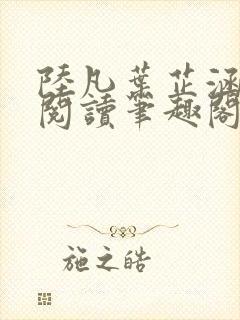 陸凡葉芷涵
閱讀筆趣閣
施之皓